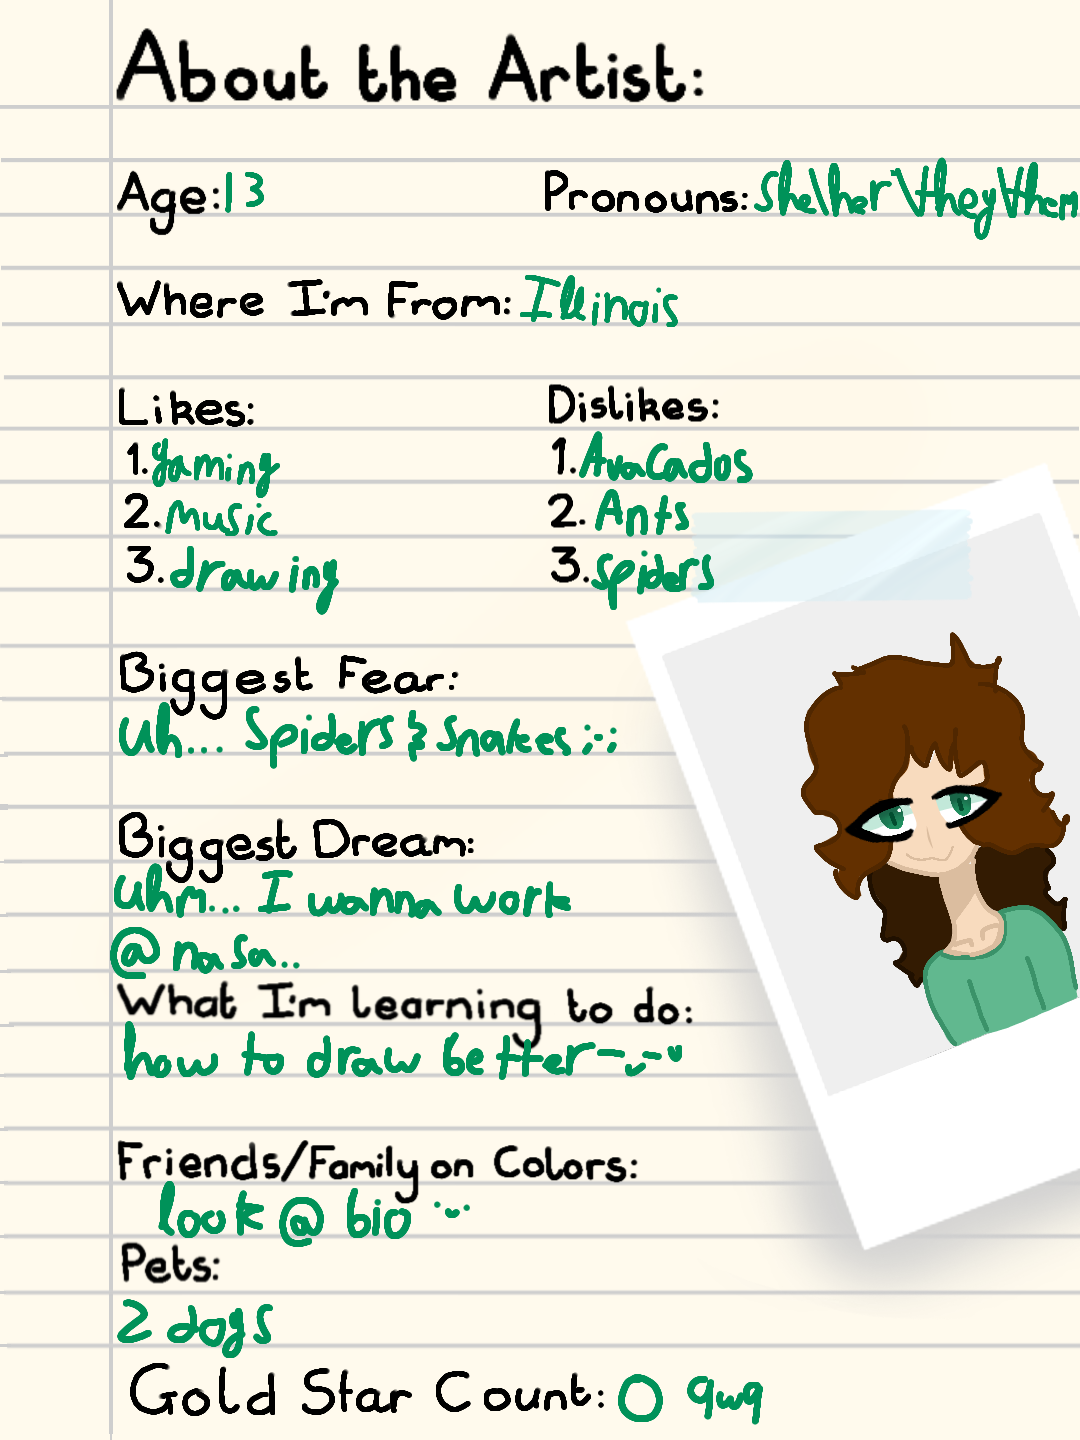 About the Artist:
Age:13 Pronouns:She\her\they\them
Where I'm From: Illinois
Likes: Dislikes:
1.gaming 1.Avacados
2.music 2. Ants
3.drawing 3.spiders
Biggest Fear:
uh... Spiders & snakes ;-;
Biggest Dream:
uhm... I wanna work
@ nasa..
What I'm learning to do:
how to draw better
Friends/Family on Colors:
look @ bio
Pets:
2 dogs
Gold Star Count: 0 qwq